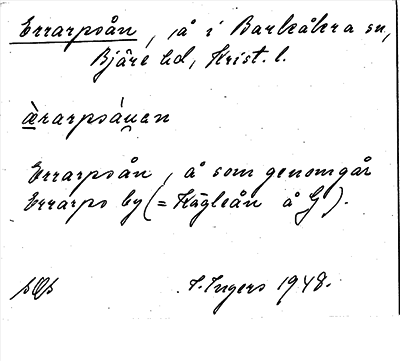 Errarpsån, å i Barkåkra sn,
Bjäre hd, Krist. l.
ärarpsåuen
Errarpsån, å som genomgår
Errarps by (= Kägleån å G).
I. Ingers 1948.